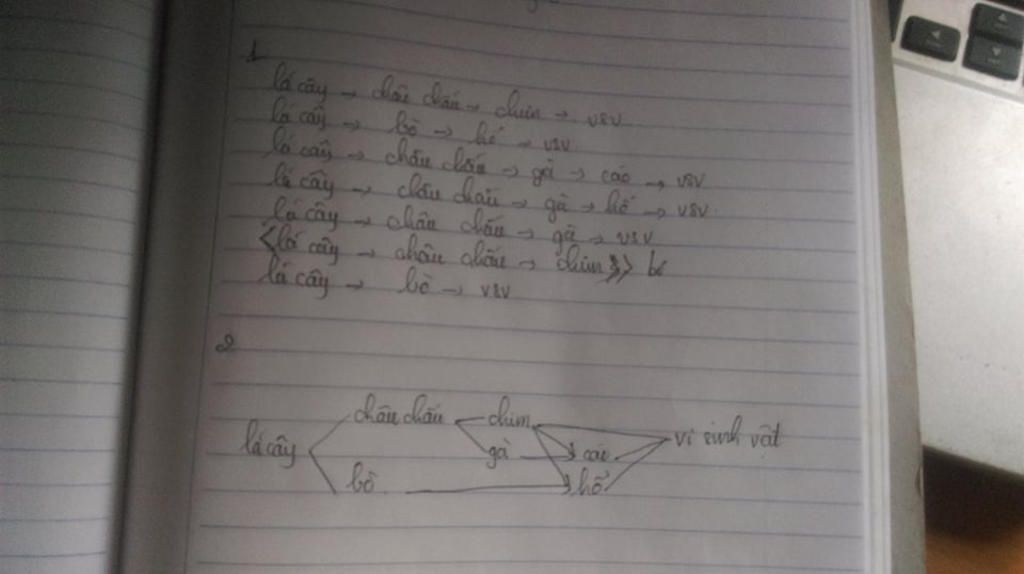 1
lá cây → châu chấu → chim → vsv
lá cây → bò → hổ → vsv
lá cây → châu chấu → gà → cáo → vsv
lá cây → châu chấu → gà → hổ → vsv
lá cây → châu chấu → gà → vsv
<lá cây → châu chấu → chim >>
lá cây → bò → vsv
2
châu chấu chim
lá cây gà cáo vi sinh vật
bò hổ